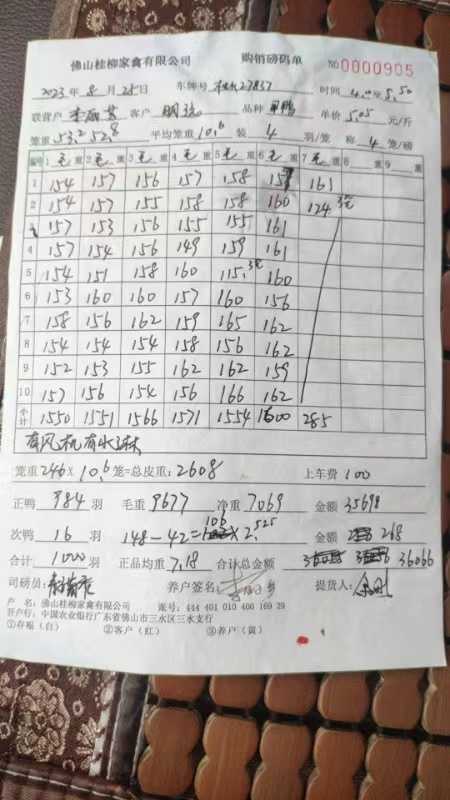 佛山桂柳家禽有限公司 购销磅码单 NO 0000905
2023年 8月 25日 车牌号 27837 时间 5.50
联营户 客户 品种 单价 5.05 元/斤
笼重 53.2 52.8 平均笼重 10.6 装 4 羽/笼 称 4 笼/磅
编号 1 毛 重 2 毛 重 3 毛 重 4 毛 重 5 毛 重 6 毛 重 7 毛 重 8 重 9 重
1 154 157 156 157 158 161
2 154 157 155 158 158 160 124
3 157 153 156 155 155 161
4 157 154 156 149 159 161
5 154 151 158 160 115 160
6 153 160 160 157 160 156
7 158 156 162 159 165 162
8 154 154 154 158 156 162
9 152 153 155 162 162 159
10 157 156 154 156 166 162
小计 1550 1551 1566 1571 1554 1600 285
有风机有水淋
笼重 246 x 10.6 笼=总皮重: 2608 上车费 100
正鸭 984 羽 毛重 9677 净重 7069 金额 35698
次鸭 16 羽 148-42= 106 x 2.525 金额 268
合计 1000 羽 正品均重 7.18 合计总金额 36066
司磅员: 养户签名: 提货人:
户 名: 佛山桂柳家禽有限公司 账号: 444 401 010 400 169 29
开户行: 中国农业银行广东省佛山市三水区三水支行
①存根(白) ②客户(红) ③养户(黄)